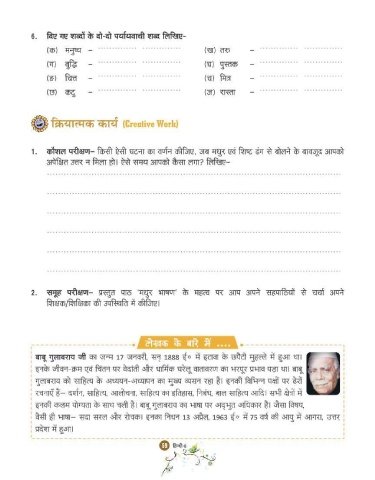 6. दिए गए शब्दों के दो-दो पर्यायवाची शब्द लिखिए–
(क) मनुष्य – (ख) तरु –
(ग) बुद्धि – (घ) पुस्तक –
(ङ) चित्त – (च) मित्र –
(छ) कटु – (ज) रास्ता –
क्रियात्मक कार्य (Creative Work)
1. कौशल परीक्षण– किसी ऐसी घटना का वर्णन कीजिए, जब मधुर एवं शिष्ट ढंग से बोलने के बावजूद आपको
अपेक्षित उत्तर न मिला हो। ऐसे समय आपको कैसा लगा? लिखिए–
2. समूह परीक्षण– प्रस्तुत पाठ 'मधुर भाषण' के महत्व पर आप अपने सहपाठियों से चर्चा अपने
शिक्षक/शिक्षिका की उपस्थिति में कीजिए।
लेखक के बारे में ....
बाबू गुलाबराय जी का जन्म 17 जनवरी, सन् 1888 ई० में इटावा के छपैटी मुहल्ले में हुआ था।
इनके जीवन-क्रम एवं चिंतन पर वेदांती और धार्मिक घरेलू वातावरण का भरपूर प्रभाव पड़ा था। बाबू
गुलाबराय को साहित्य के अध्ययन-अध्यापन का मुख्य व्यसन रहा है। इनकी विभिन्न पक्षों पर ढेरों
रचनाएँ हैं– दर्शन, साहित्य, आलोचना, साहित्य का इतिहास, निबंध, बाल साहित्य आदि। सभी क्षेत्रों में
इनकी कलम योग्यता के साथ चली है। बाबू गुलाबराय का भाषा पर अद्भुत अधिकार है। जैसा विषय,
वैसी ही भाषा– सदा सरल और रोचक। इनका निधन 13 अप्रैल, 1963 ई० में 75 वर्ष की आयु में आगरा, उत्तर
प्रदेश में हुआ।
हिन्दी